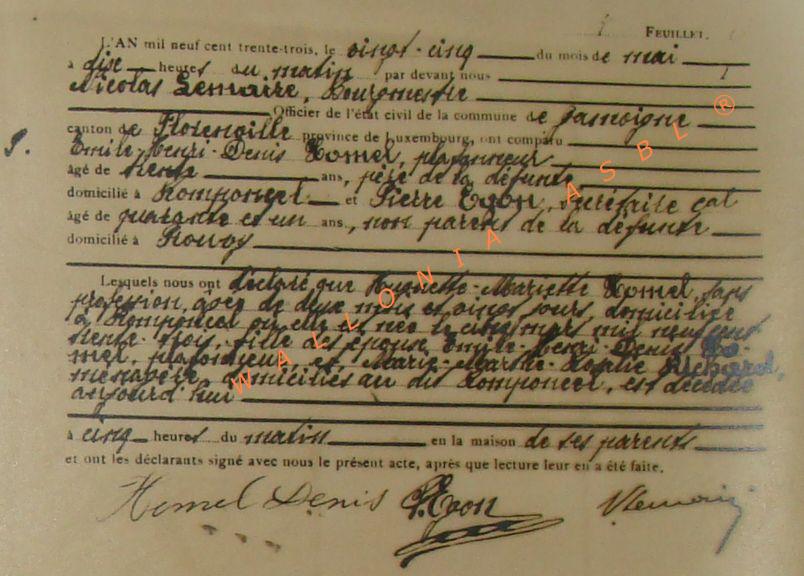 FEUILLET.
L'AN mil neuf cent trente-trois, le vingt-cinq du mois de mai
à dix heures du matin par devant nous
Nicolas Lemaire, Bourgmestre
Officier de l'état civil de la commune de Jamoigne
canton de Florenville province de Luxembourg, ont comparu
5. Emile-Henri-Denis Homel, plafonneur
âgé de trente ans, père de la défunte
domicilié à Romponcel et Pierre Egon, secrétaire cal
âgé de quarante et un ans, non parent de la défunte
domicilié à Prouvoy
Lesquels nous ont déclaré que Huguette-Mariette Homel, sans
profession, âgée de deux mois et vingt jours, domiciliée
à Romponcel où elle est née le cinq mars mil neuf cent
trente-trois, fille des époux Emile-Henri-Denis Ho-
mel, plafonneur et Marie-Marthe-Rosalie Richard,
ménagère, domiciliés au dit Romponcel, est décédée
aujourd'hui
à cinq heures du matin en la maison de ses parents
et ont les déclarants signé avec nous le présent acte, après que lecture leur en a été faite.
Homel Denis P. Egon NLemaire
WALLONIA ASBL ®